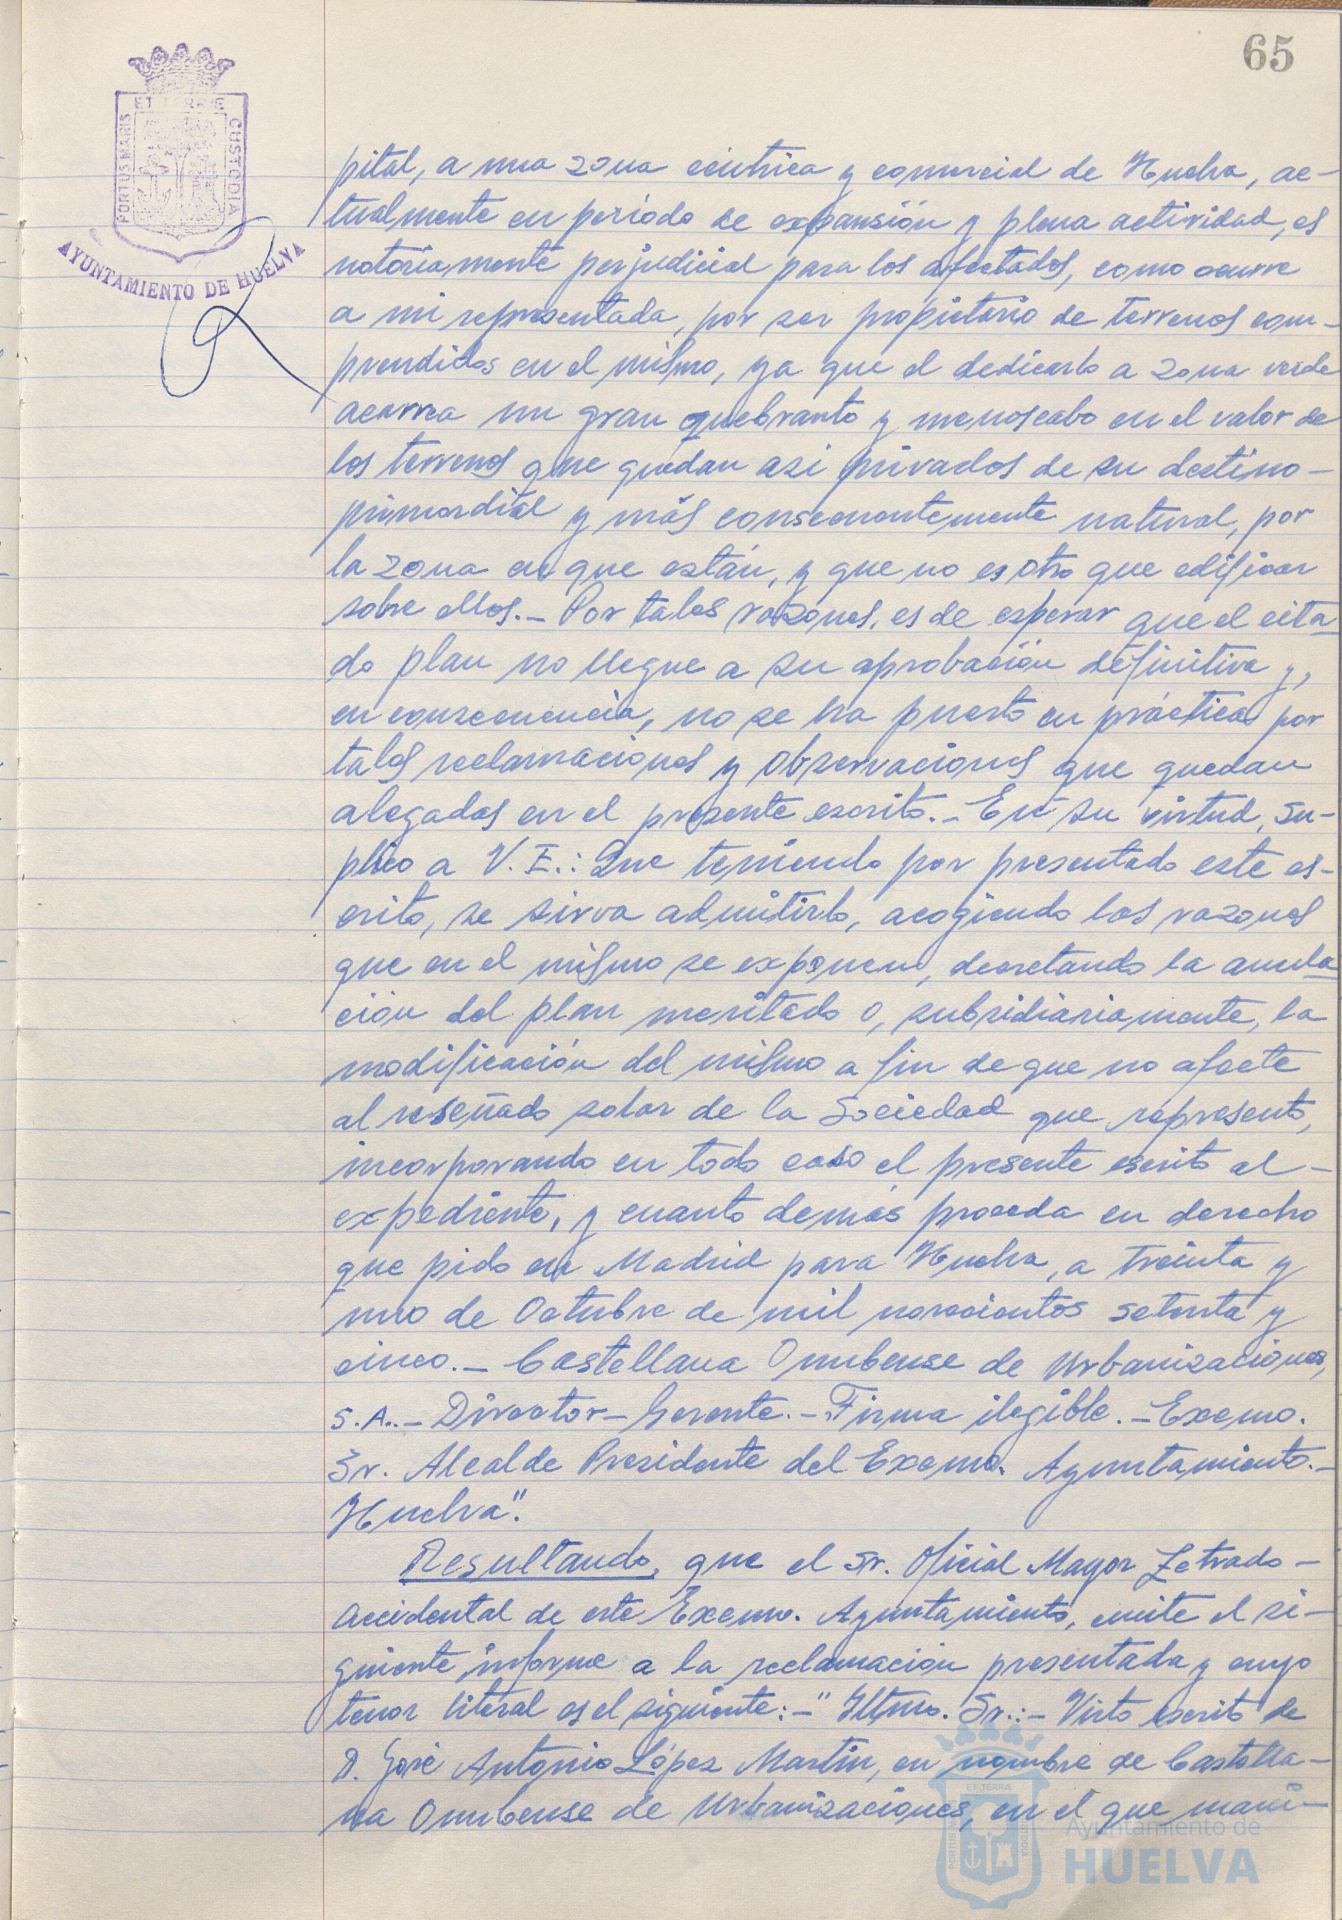 65
ET TERRÆ
PORTUS MARIS
CUSTODIA
AYUNTAMIENTO DE HUELVA
pital, a una zona céntrica y comercial de Huelva, ac-
tualmente en período de expansión y plena actividad, es
notoriamente perjudicial para los afectados, como ocurre
a mi representada, por ser propietario de terrenos com-
prendidos en el mismo, ya que el dedicarlo a zona verde
acarrea un gran quebranto y menoscabo en el valor de
los terrenos que quedan así privados de su destino-
primordial y más consecuentemente natural, por
la zona en que están, y que no es otro que edificar
sobre ellos.- Por tales razones, es de esperar que el cita-
do plan no llegue a su aprobación definitiva y,
en consecuencia, no se lva puesto en práctica por
tales reclamaciones y observaciones que quedan
alegadas en el presente escrito.- En su virtud, Su-
plico a V. E.: Que teniendo por presentado este es-
crito, se sirva admitirlo, acogiendo las razones
que en el mismo se exponen, decretando la anula
ción del plan meritado o, subsidiariamente, la
modificación del mismo a fin de que no afecte
al reseñado solar de la Sociedad que represento,
incorporando en todo caso el presente escrito al-
expediente, y cuanto demás proceda en derecho
que pido en Madrid para Huelva, a treinta y
uno de Octubre de mil novecientos setenta y
cinco.- Castellana Onubense de Urbanizaciones,
S.A..- Director-Gerente.- Firma ilegible.- Excmo.
Sr. Alcalde Presidente del Excmo. Ayuntamiento.-
Huelva".
Resultando, que el Sr. Oficial Mayor Letrado-
Accidental de este Excmo. Ayuntamiento, emite el si-
guiente informe a la reclamación presentada y cuyo
tenor literal es el siguiente:- "Iltmo. Sr.:- Visto escrito de
D. José Antonio López Martín, en nombre de Castella-
na Onubense de Urbanizaciones, en el que mani-
ET TERRA
PORTUS MARIS
CUSTODIA
Ayuntamiento de
HUELVA